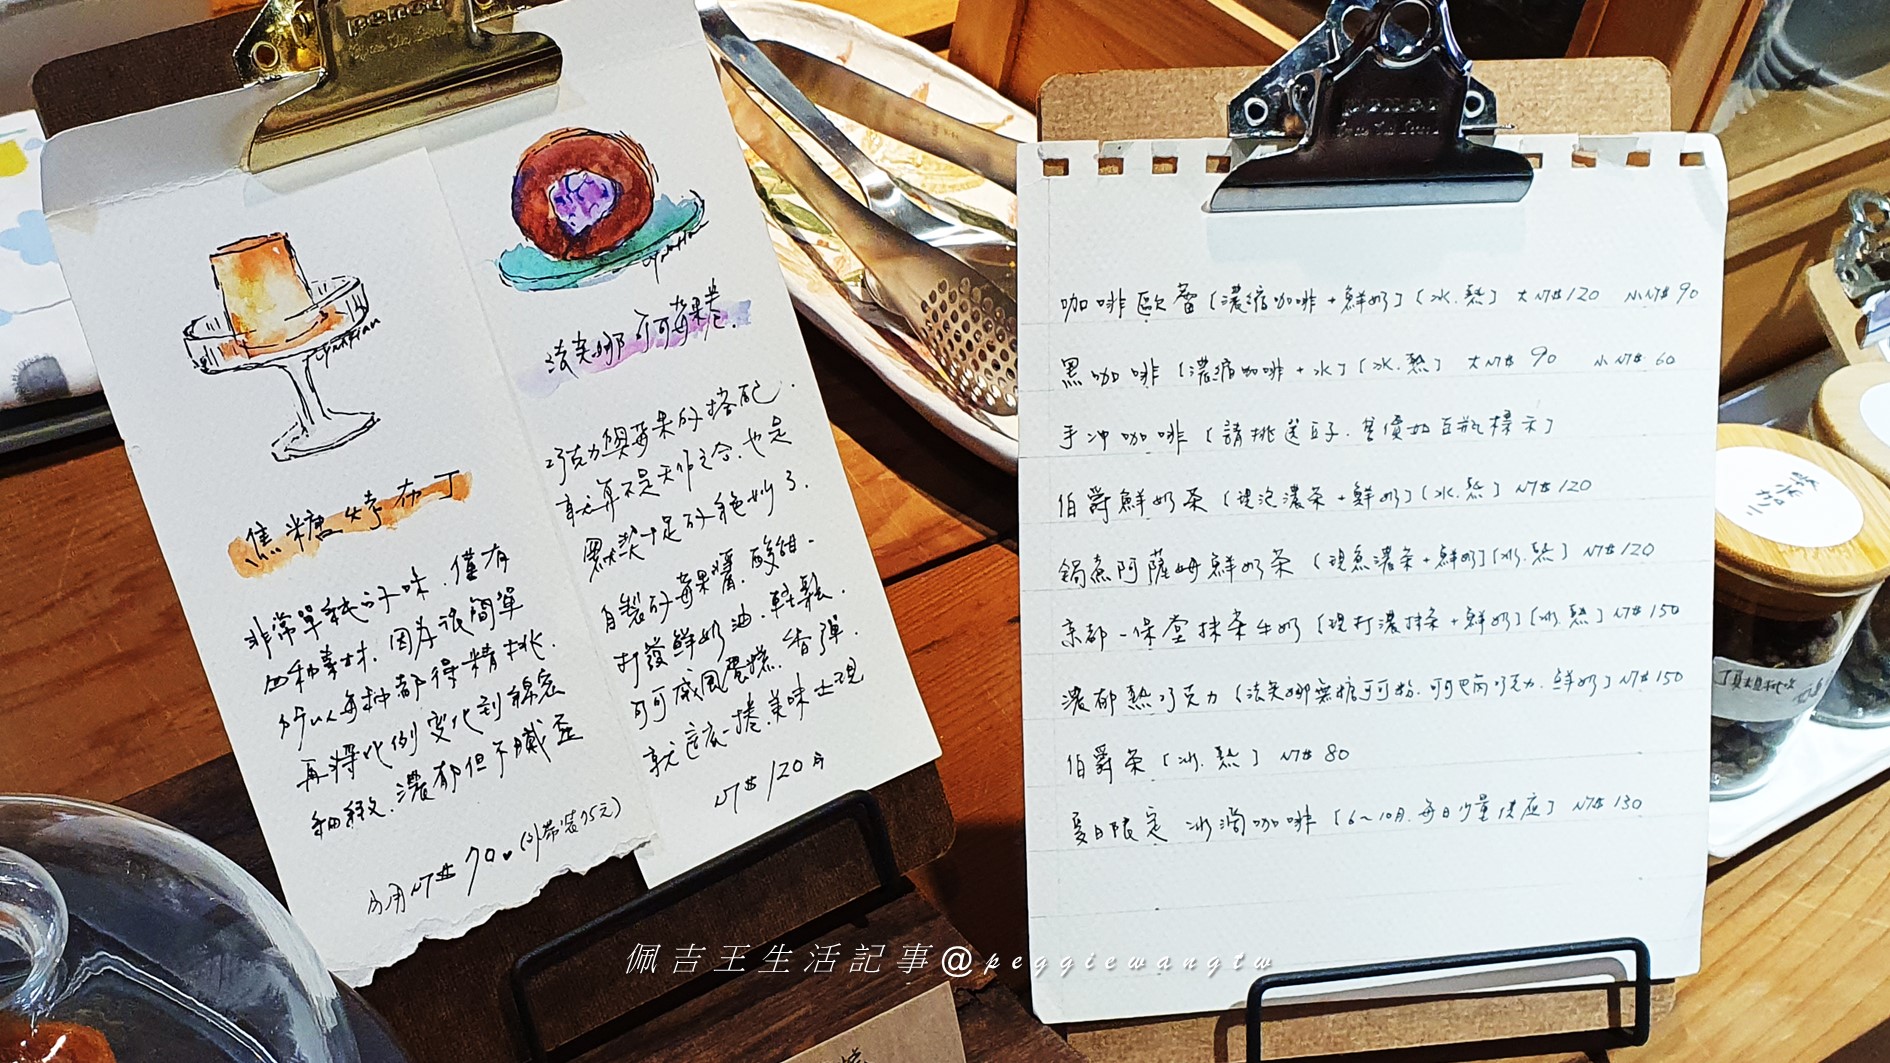 焦糖烤布丁
非常單純的味，僅有
四種素材，因為很簡單
所以每種都得精挑，
再將比例變化到綿密
細緻，濃郁但不膩
內用NT$ 70。(外帶裝75元)
法芙娜可可莓果卷
巧克力與莓果的搭配，
就算不是天作之合，也是
默契十足的絕妙了。
自製的莓果醬，酸甜、
打發鮮奶油，輕鬆、
可可戚風蛋糕，香彈，
就這底一捲，美味出現
NT$ 120
咖啡歐蕾〔濃縮咖啡+鮮奶〕〔冰.熱〕 大NT$120 小NT$90
黑咖啡〔濃縮咖啡+水〕〔冰.熱〕 大NT$ 90 小NT$ 60
手沖咖啡〔請挑選豆子.售價如豆瓶標示〕
伯爵鮮奶茶〔現泡濃茶+鮮奶〕〔冰.熱〕 NT$120
鍋煮阿薩姆鮮奶茶〔現煮濃茶+鮮奶〕〔冰.熱〕 NT$120
京都一保堂抹茶牛奶〔現打濃抹茶+鮮奶〕〔冰.熱〕 NT$150
濃郁熱巧克力〔法芙娜無糖可可粉.可可巴芮巧克力.鮮奶〕 NT$150
伯爵茶〔冰.熱〕 NT$ 80
夏日限定 冰滴咖啡〔6~10月.每日少量供應〕 NT$ 130
佩吉王生活記事@peggiewangtw